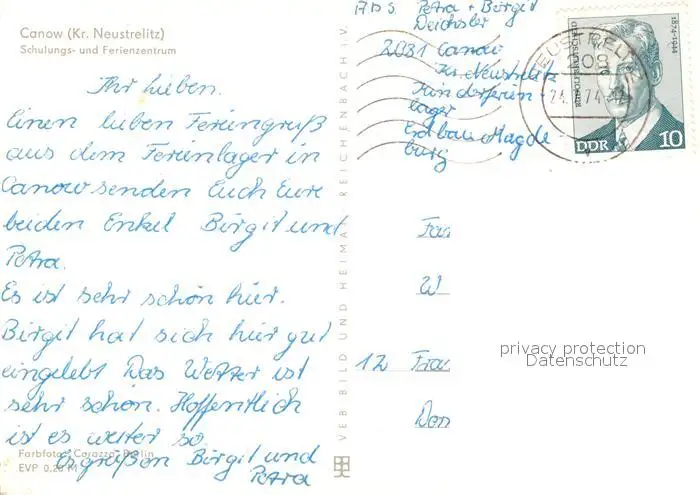 Canow (Kr. Neustrelitz)
Schulungs- und Ferienzentrum
Ihr lieben.
Einen lieben Feriengruß
aus dem Ferienlager in
Canow senden Euch Eure
beiden Enkel Birgit und
Petra.
Es ist sehr schön hier.
Birgit hat sich hier gut
eingelebt Das Wetter ist
sehr schön. Hoffentlich
ist es weiter so.
Es grüßen Birgit und
Petra
Farbfoto: Carazza, Berlin
EVP 0,20 M
VEB BILD UND HEIMAT REICHENBACH i. V.
ABS Petra + Birgit
Deichsler
2081 Canow
Kr. Neustrelitz
Kinderferien-
lager
Erdbau Magde
burg
NEUSTRELITZ
208
74
RUDOLF BREITSCHEID
1874-1944
DDR 10
Fa
W
12 Fra
Don
privacy protection
Datenschutz